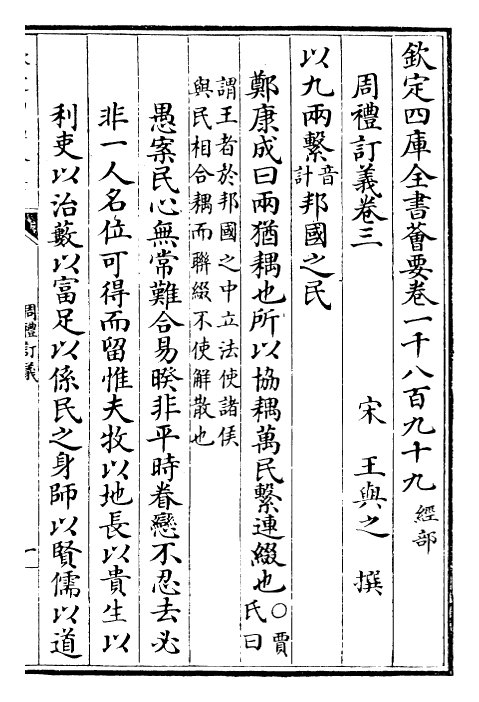 欽定四庫全書薈要卷一千八百九十九 經部
周禮訂義卷三 宋 王與之 撰
以九兩繫音計邦國之民
鄭康成曰兩猶耦也所以協耦萬民繫連綴也○賈氏曰
謂王者於邦國之中立法使諸侯
與民相合耦而聯綴不使解散也
愚案民心無常難合易暌非平時眷戀不忍去必
非一人名位可得而留惟夫牧以地長以貴生以
利吏以治藪以富足以係民之身師以賢儒以道
周禮訂義
一